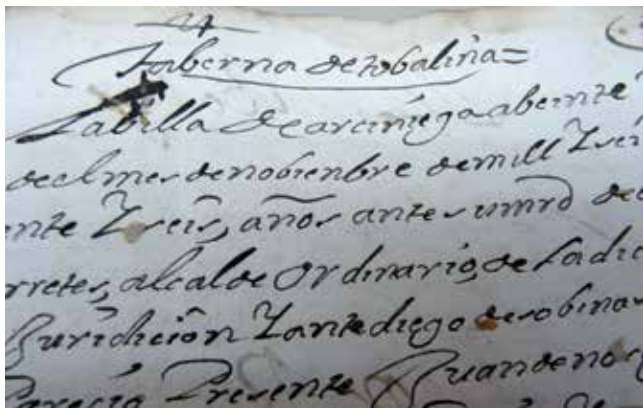 taberna de tobaliña =
La billa de arciniega a beinte
del mes de nobienbre de mill Y sei
ente Y seis, años ante su mrd de
rretes, alcalde Ordinario, de La dic
Juridicion Y ante diego de sobina
Parecio Presente Juan de no